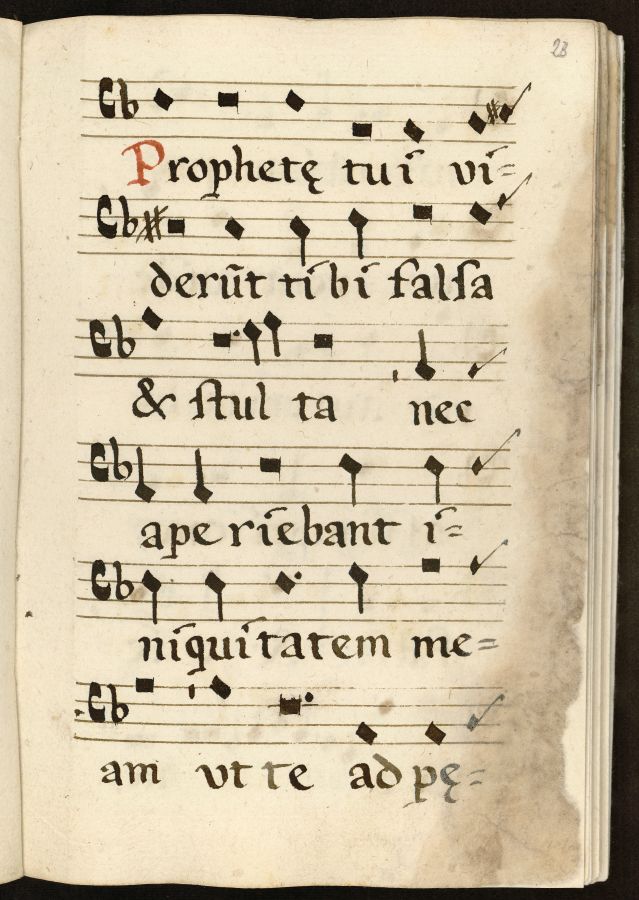 23
Prophetę tui vi=
derūt tibi falsa
& stul ta nec
aperiebant i=
niquitatem me=
am vt te ad pę=